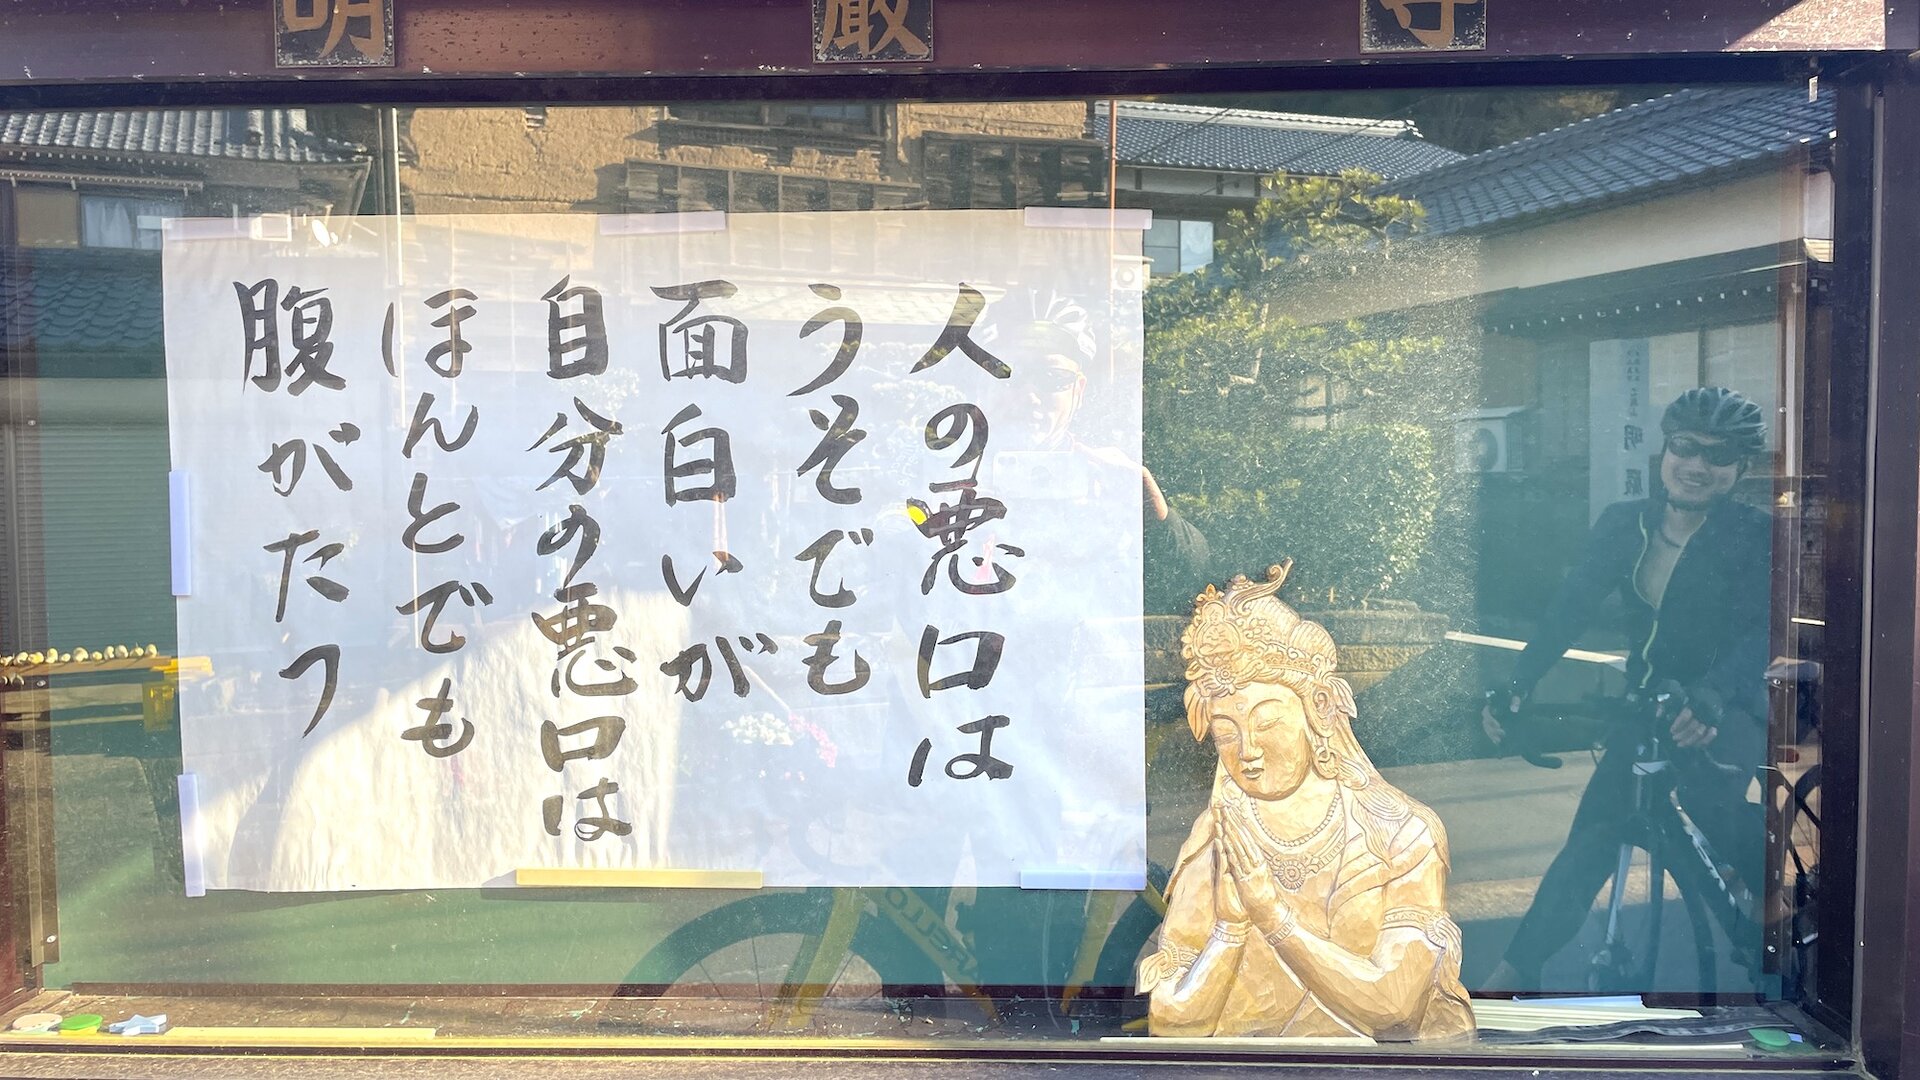 明 厳 寺
人の悪口は
うそでも
面白いが
自分の悪口は
ほんとでも
腹がたつ
明 厳